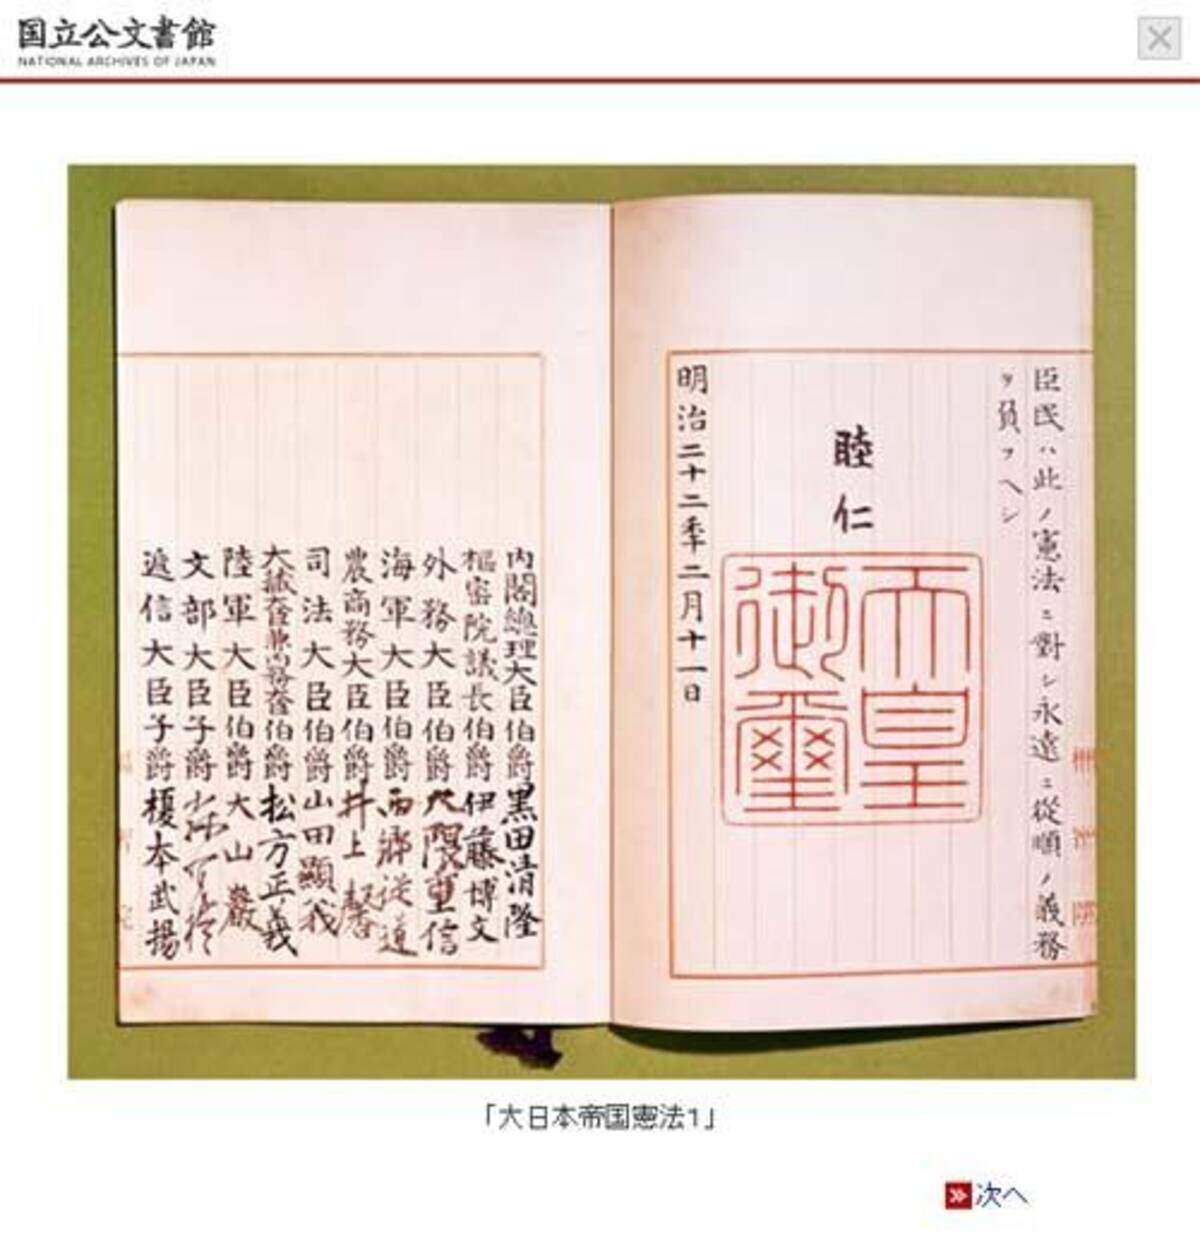 国立公文書館
NATIONAL ARCHIVES OF JAPAN
臣民ハ此ノ憲法ニ對シ永遠ニ從順ノ義務
ヲ負フヘシ
睦仁
天皇
御璽
明治二十二年二月十一日
内閣總理大臣伯爵黒田清隆
樞密院議長伯爵伊藤博文
外務大臣伯爵大隈重信
海軍大臣伯爵西郷従道
農商務大臣伯爵井上馨
司法大臣伯爵山田顯義
大藏大臣兼内務大臣伯爵松方正義
陸軍大臣伯爵大山巖
文部大臣子爵
遞信大臣子爵榎本武揚
「大日本帝国憲法1」
次へ